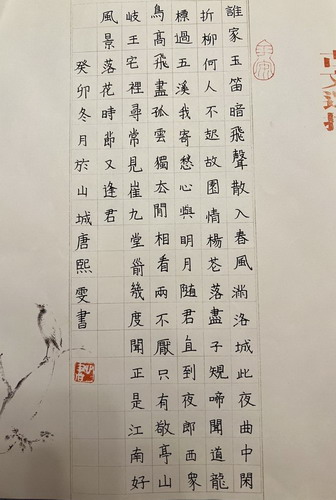 誰家玉笛暗飛聲散入春風滿洛城此夜曲中聞
折柳何人不起故園情楊花落盡子規啼聞道龍
標過五溪我寄愁心與明月随君直到夜郎西眾
鳥高飛盡孤雲獨去閒相看兩不厭只有敬亭山
岐王宅裡尋常見崔九堂前幾度聞正是江南好
風景落花時節又逢君
癸卯冬月於山城唐熙雯書